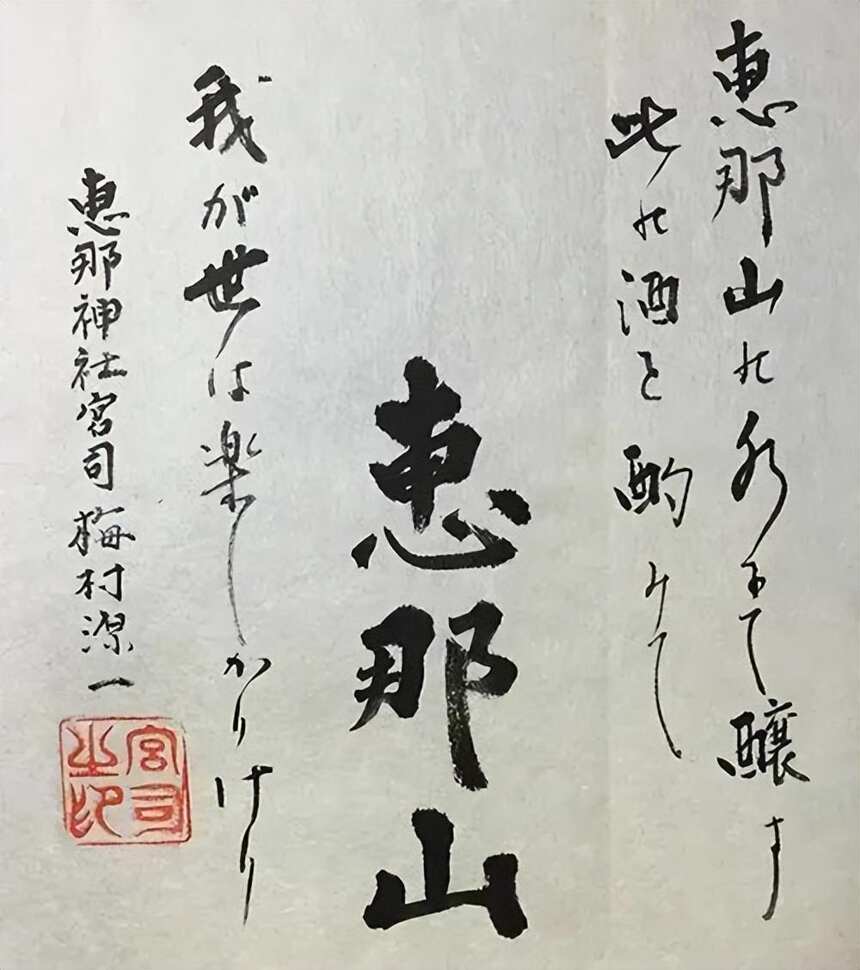 恵那山の水にて醸す
此の酒を酌みて
恵那山
我が世は楽しかりけり
恵那神社宮司 梅村源一
宮司
之印